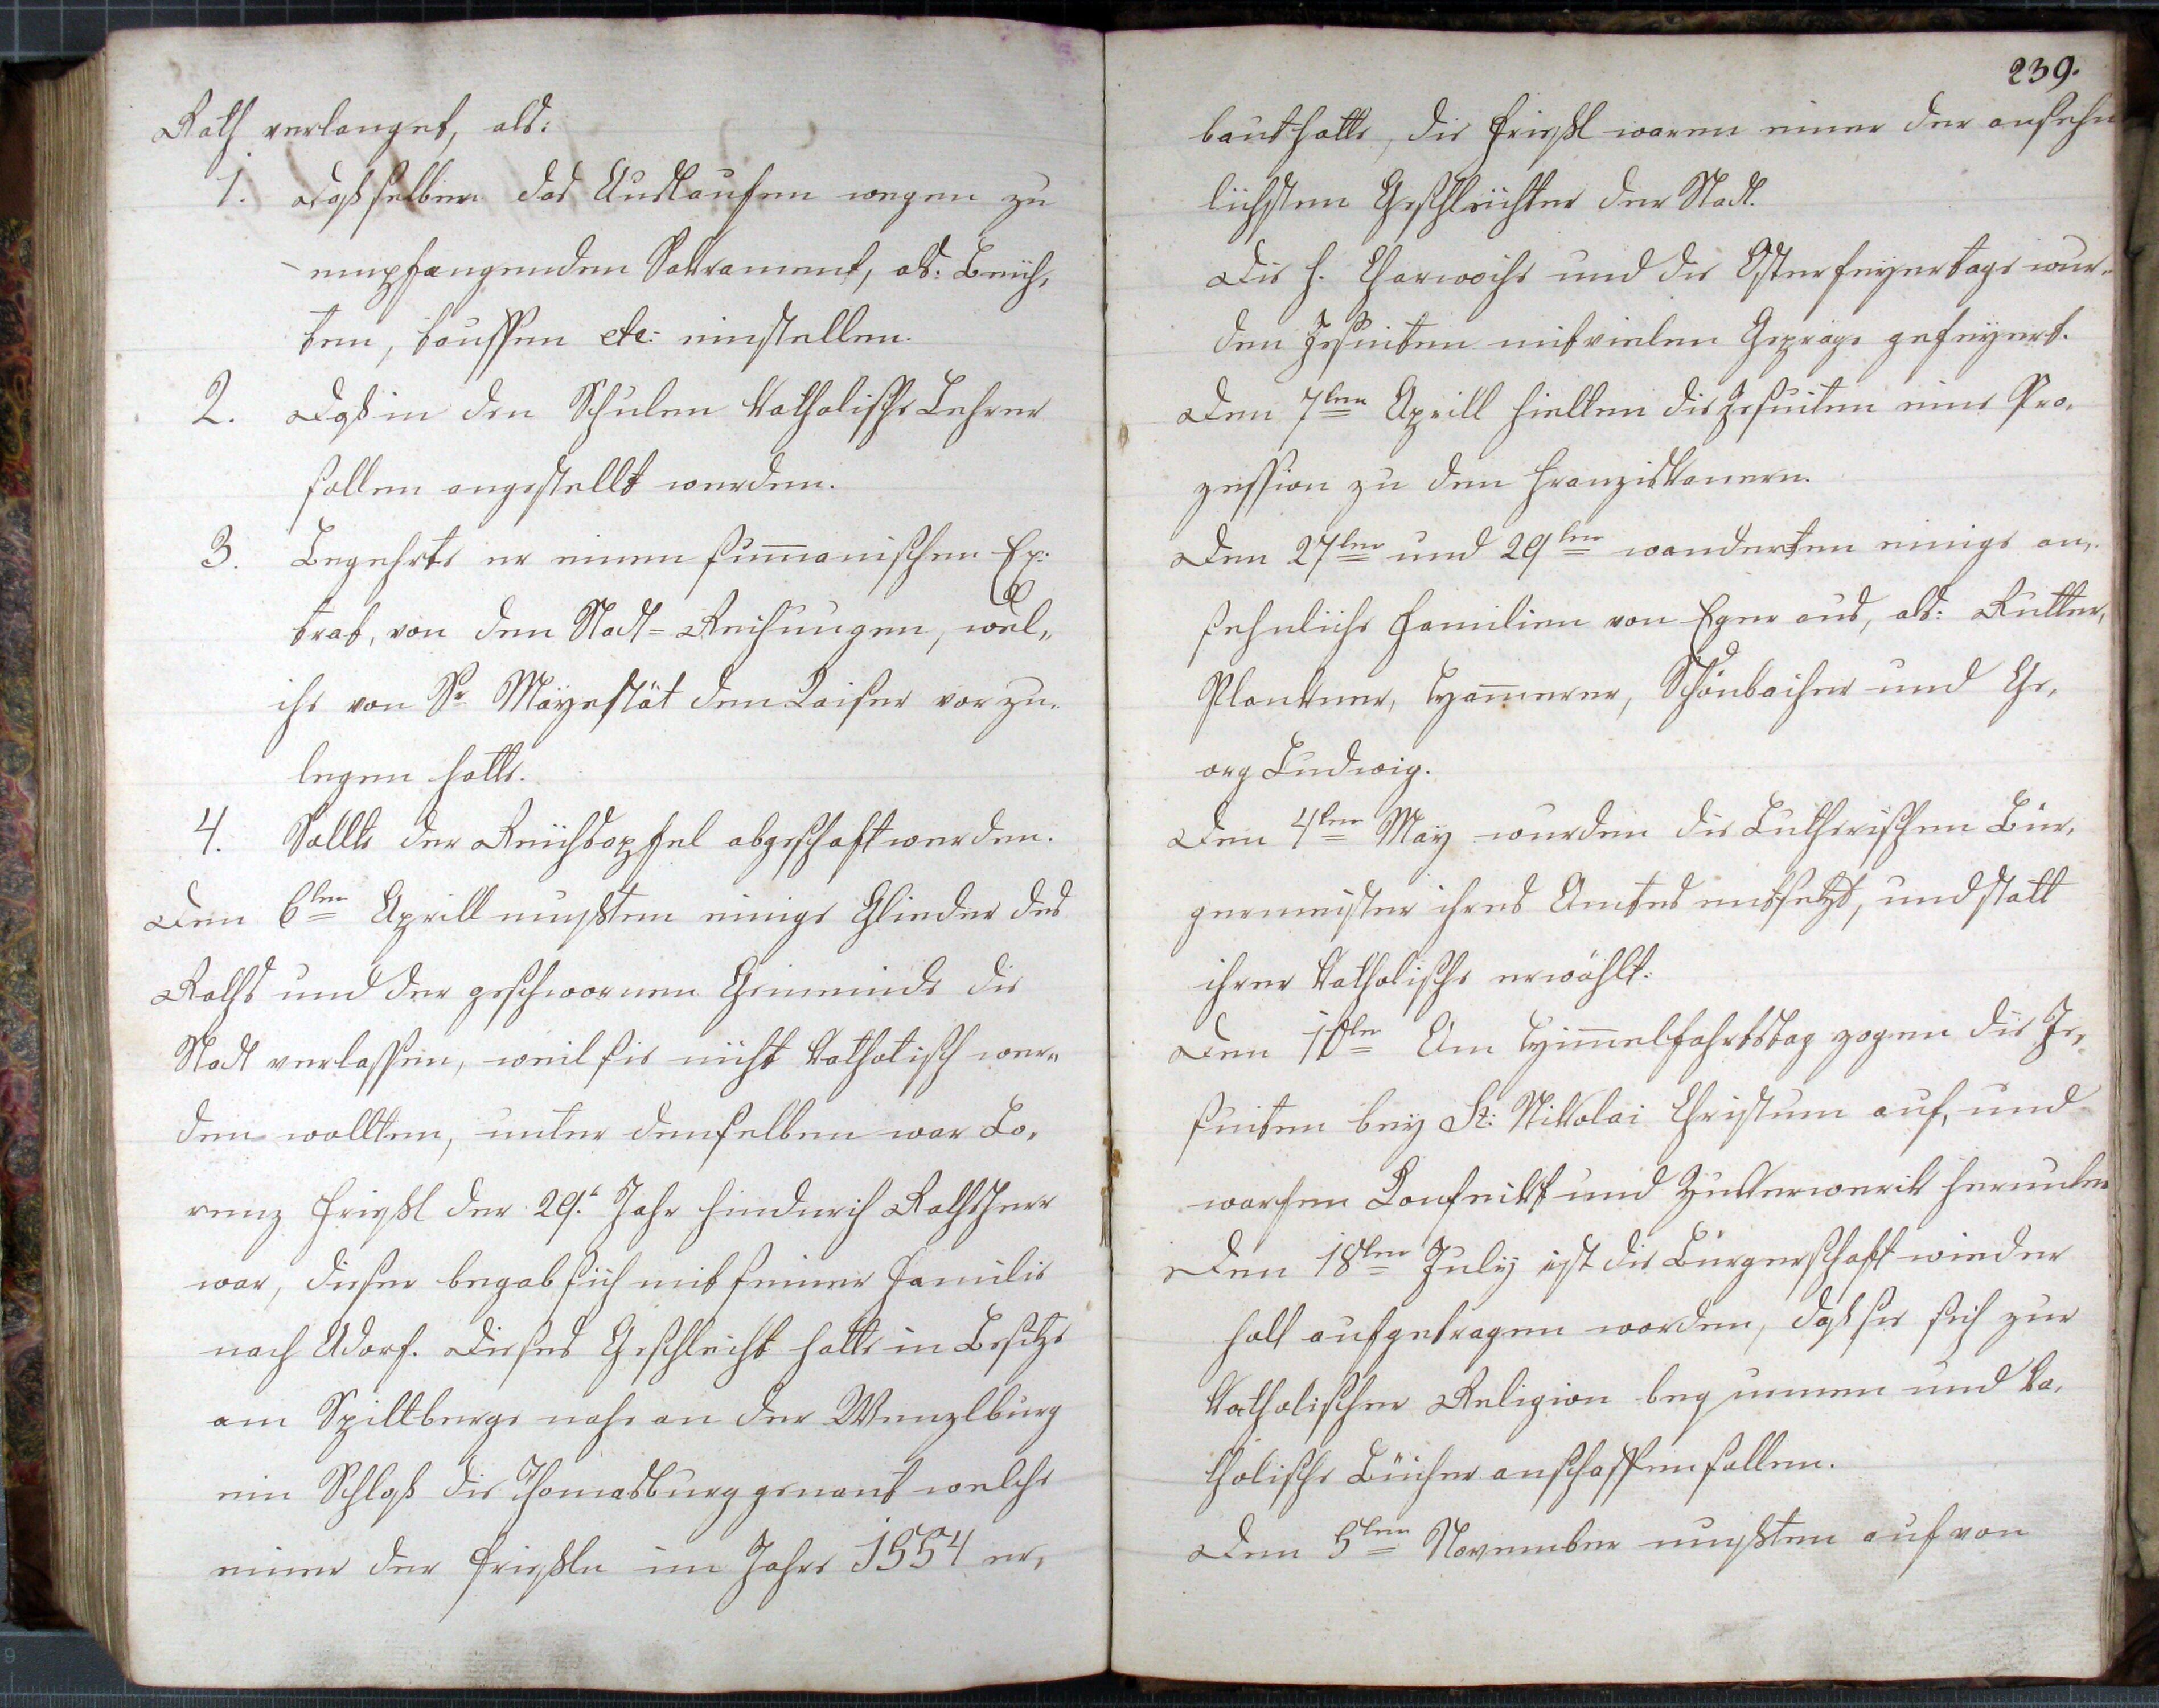 Rath verlanget, als:
1. Daß selber das Auslaufen wegen zu
empfangenden Sakrament, als: Beich,
ten, tauffen etc: einstellen.
2. Daß in den Schulen katholische Lehrer
sollen angestellt werden.
3. Begehrte er einen sum̅arischen Ex:
trat, von den Stadt-Reihungen, wel,
che von Sr Mayestät dem Kaiser vorzu.
legen hatte.
4. Sollte der Reichsapfel abgeschaft werden.
Den 6ten Aprill mußten einige Glieder des
Raths und der geschwornen Gemeinde die
Stadt verlassen, weil sie nicht katholisch wer„
den wollten, unter denselben war Lo,
renz Frießl der 29.t Jahr hindurch Rathsherr
war, dieser begab sich mit seiner Familie
nach Adorf. Dieses Geschlecht hatte in Besitze
am Spittberge nahe an der Wenzlburg
ein Schloß die Thomasburg genant welche
einer der Frießln im Jahre 1554 er,
239.
baut hatte, die Frießl waren einer der ansehn
lichsten Geschlechter der Stadt.
Die h. Charwoche und die Osterfeyertage wur„
den Jesuiten mit vielen Gepräge gefeyert.
Den 7ten Aprill hielten die Jesuiten eine Pro,
zession zu den Franziskanern.
Den 27ten und 29ten wanderten einige an„
sehnliche Familien von Eger aus, als: Rutter,
Plankner, Ham̅erer, Schönbacher und Ge,
org Ludwig.
Den 4ten May wurden die Lutherischen Bür,
germeister ihres Amtes entsetzt, und statt
ihrer katholische erwählt.
Den 10ten Am Him̅elfahrtstag zogen die Je,
suiten bey St: Nikolai Christum auf, und
warfen Konfeckt und Zukerwerck herunter
Den 18ten July ist die Bürgerschaft wieder
holt aufgetragen worden, daß sie sich zur
katholischen Religion bequemen und ka,
tholische Bücher anschaffen sollen.
Den 5ten November mußten auf von